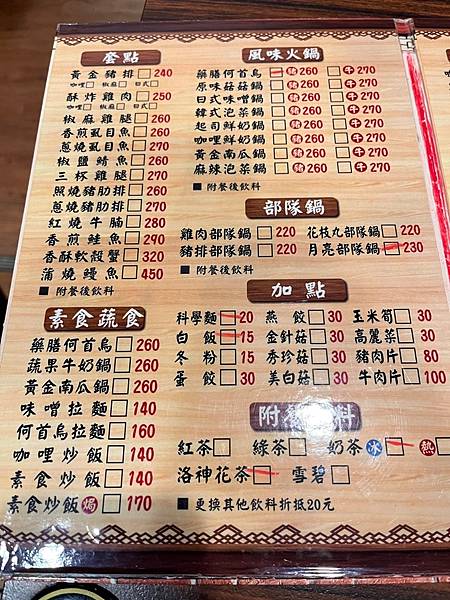 餐點
黃金豬排□240
咖哩□ 椒麻□ 日式□
酥炸雞肉□250
咖哩□ 椒麻□ 日式□
椒麻雞腿□260
香煎虱目魚□260
蔥燒虱目魚□270
椒鹽鯖魚□260
三杯雞腿□270
照燒豬肋排□260
蔥燒豬肋排□270
紅燒牛腩□280
香煎鮭魚□290
香酥軟殼蟹□320
蒲燒鰻魚□450
■ 附餐後飲料
素食蔬食
藥膳何首烏□260
蔬果牛奶鍋□260
黃金南瓜鍋□260
味噌拉麵□140
何首烏拉麵□160
咖哩炒飯□140
素食炒飯□140
素食炒飯焗□170
風味火鍋
藥膳何首烏□豬260 □牛270
原味菇菇鍋□豬260 □牛270
日式味噌鍋□豬260 □牛270
韓式泡菜鍋□豬260 □牛270
起司鮮奶鍋□豬260 □牛270
咖哩鮮奶鍋□豬260 □牛270
黃金南瓜鍋□豬260 □牛270
麻辣泡菜鍋□豬260 □牛270
■ 附餐後飲料
部隊鍋
雞肉部隊鍋□220 花枝丸部隊鍋□220
豬排部隊鍋□220 月亮部隊鍋□230
■ 附餐後飲料
加點
科學麵□20 燕餃□30 玉米筍□30
白飯□15 金針菇□30 高麗菜□30
冬粉□15 秀珍菇□30 豬肉片□80
蛋餃□30 美白菇□30 牛肉片□100
附餐飲料
紅茶□ 綠茶□ 奶茶冰□ 熱□
洛神花茶□ 雪碧□
■ 更換其他飲料折抵20元